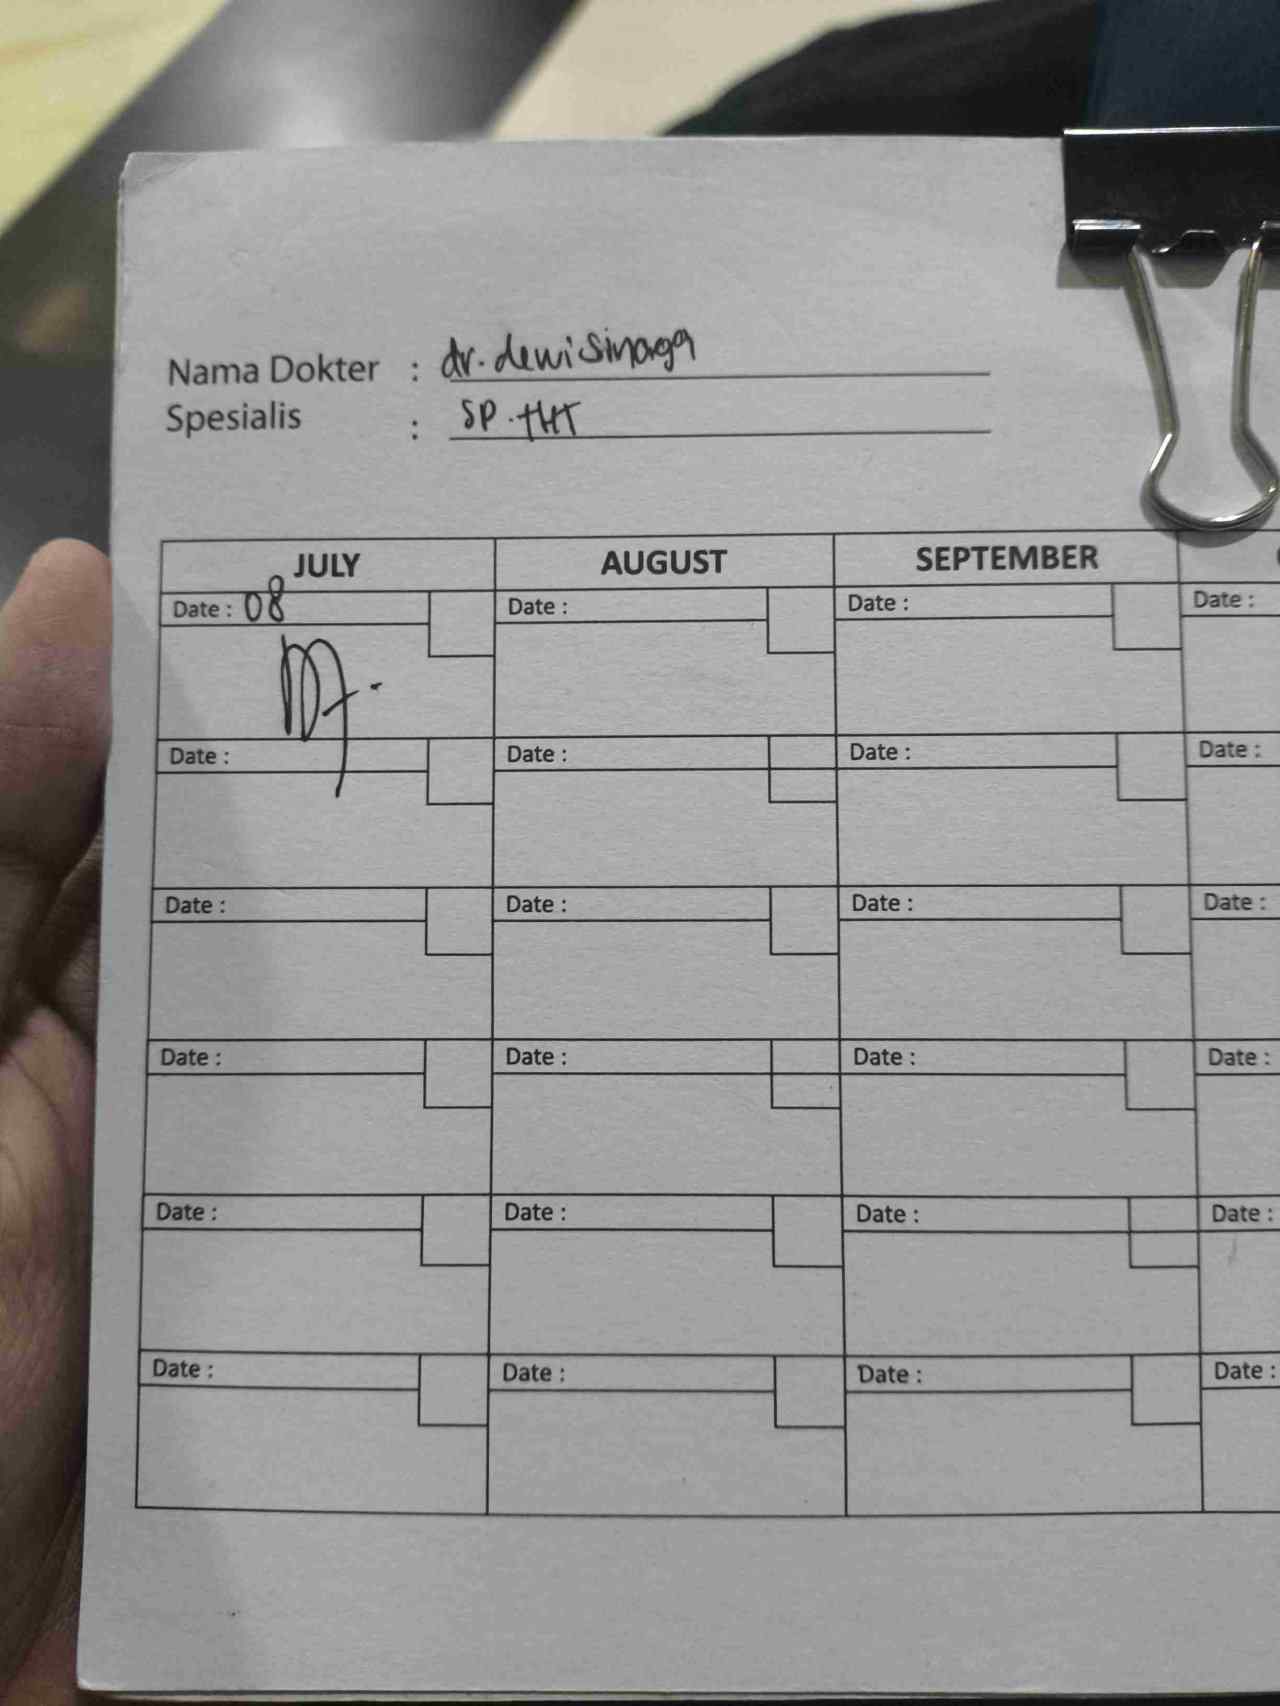 Nama Dokter : dr. dewi Sinaga
Spesialis : SP. THT
JULY AUGUST SEPTEMBER
Date : 08 Date : Date : Date :
Date : Date : Date : Date :
Date : Date : Date : Date :
Date : Date : Date : Date :
Date : Date : Date : Date :
Date : Date : Date : Date :